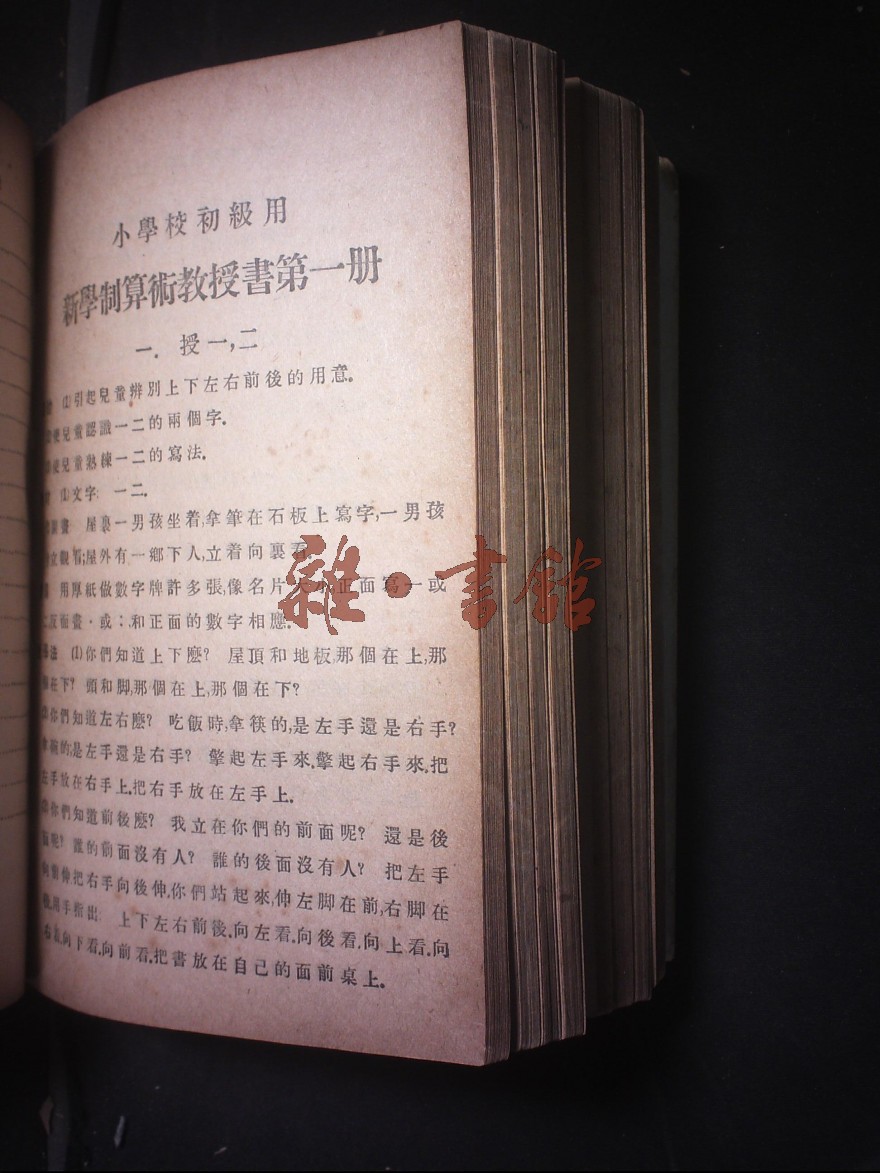 小學校初級用
新學制算術教授書第一册
一. 授一,二
⑴引起兒童辨別上下左右前後的用意.
使兒童認識一二的兩個字.
使兒童熟練一二的寫法.
⑴文字: 一二.
畫 屋裏一男孩坐着,拿筆在石板上寫字,一男孩
立觀看;屋外有一鄉下人,立着向裏看.
用厚紙做數字牌許多張,像名片大小,正面寫一或
二,反面畫・或:,和正面的數字相應.
法 ⑴你們知道上下麽? 屋頂和地板,那個在上,那
在下? 頭和脚,那個在上,那個在下?
你們知道左右麽? 吃飯時,拿筷的,是左手還是右手?
拿碗的;是左手還是右手? 擎起左手來.擎起右手來.把
左手放在右手上.把右手放在左手上.
你們知道前後麽? 我立在你們的前面呢? 還是後
面呢? 誰的前面沒有人? 誰的後面沒有人? 把左手
向前伸.把右手向後伸.你們站起來,伸左脚在前,右脚在
用手指出: 上下左右前後.向左看.向後看.向上看.向
右看.向下看.向前看.把書放在自己的面前桌上.
雜・書館